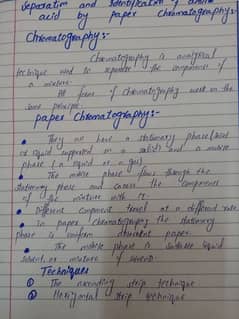 Separation and Identification of amino
acid by paper Chromatography:-
Chromatography:-
Chromatography is analytical
technique used to separate the components of
a mixture.
All forms of Chromatography work on the
same principle.
paper Chromatography:-
They all have a stationary phase (solid
or liquid supported on a solid) and a mobile
phase (a liquid or a gas)
The mobile phase flows through the
stationary phase and carries the components
of the mixture with it.
Different component travel at a different rate.
In paper chromatography the stationary
phase is uniform absorbent paper.
The mobile phase is suitable liquid
solvent or mixture of solvent.
Techniques
① The ascending strip technique
② Horizontal strip technique